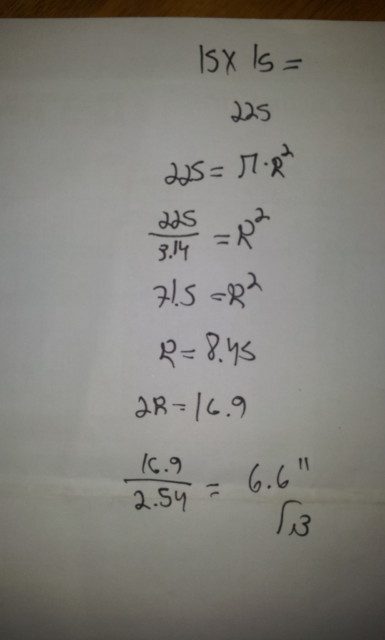 15 x 15 =
225
225 = π · R²
225
3.14
= R²
71.5 = R²
R = 8.45
2R = 16.9
16.9
2.54
= 6.6"